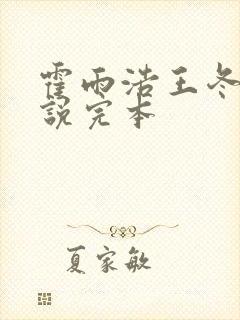 霍雨浩王冬
说完本
夏家敏